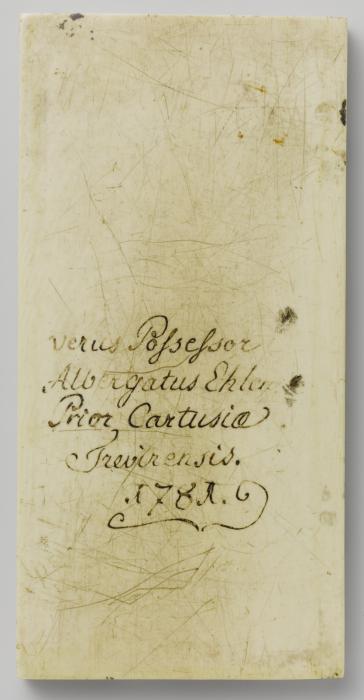 verus Possessor
Albergatus Ehlen
Prior Cartusiæ
Trevirensis.
.1781.